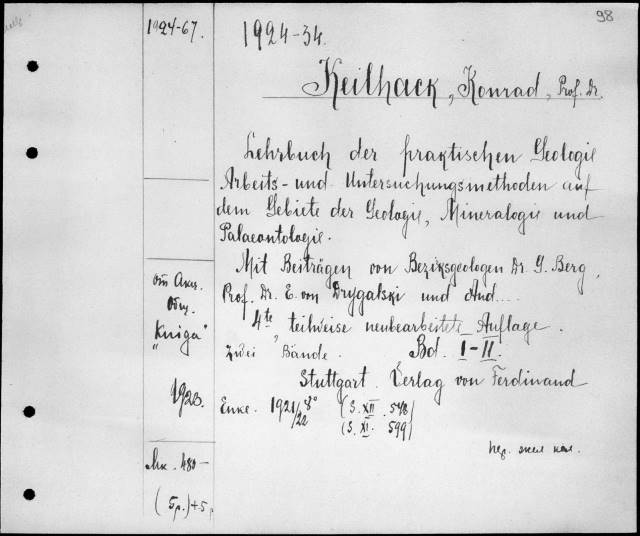 98
1924-67.
1924-34.
Keilhack, Konrad, Prof. Dr.
Lehrbuch der praktischen Geologie
Arbeits- und Untersuchungsmethoden auf
dem Gebiete der Geologie, Mineralogie und
Palaeontologie.
Mit Beiträgen von Bezirksgeologen Dr. G. Berg,
Prof. Dr. E. von Drygalski und And...
4te teilweise neubearbeitete Auflage.
Zwei Bände. Bd. I-II.
Stuttgart. Verlag von Ferdinand
Enke. 1921/22 8° (S. XII. 548)
(S. XI. 599)
от Акц.
Общ.
"Kniga"
1923.
Мк. 480-
(5р.)+5р
пер.